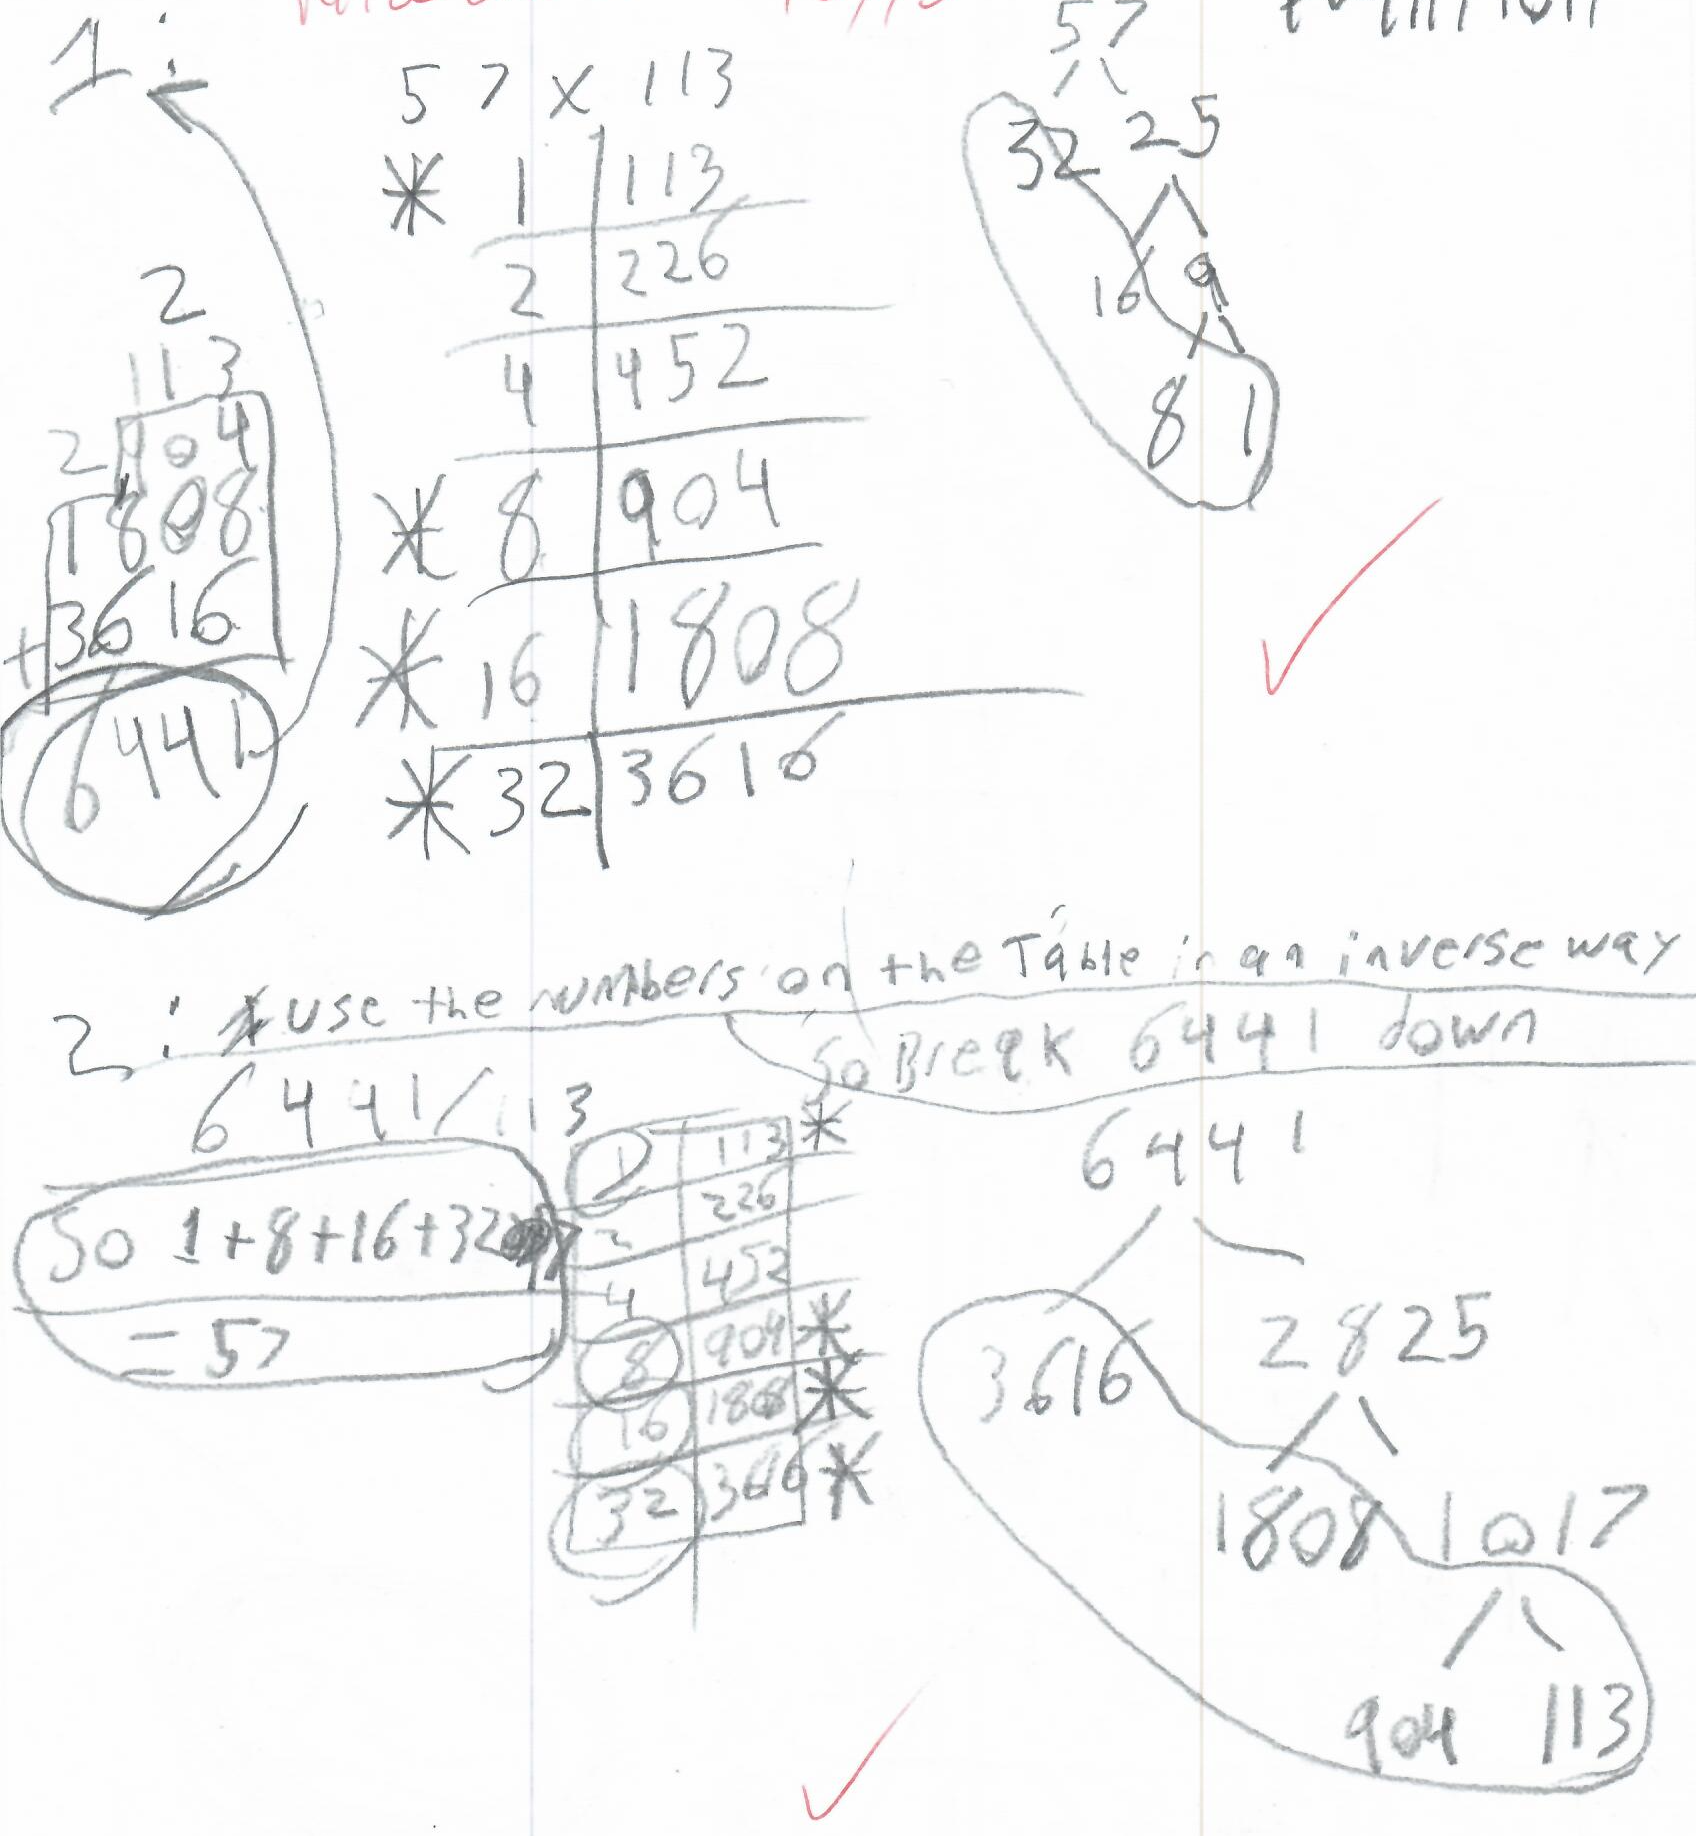 1:
57 x 113
* 1 | 113
2 | 226
4 | 452
* 8 | 904
* 16 | 1808
* 32 | 3616
2
113
2 904
1808
+3616
6441
57
32 25
16 9
8 1
2: * use the numbers on the Table in an inverse way
So Break 6441 down
6441/113
So 1+8+16+32
= 57
1 | 113 *
2 | 226
4 | 452
8 | 904 *
16 | 1808 *
32 | 3616 *
6441
3616 2825
1808 1017
904 113